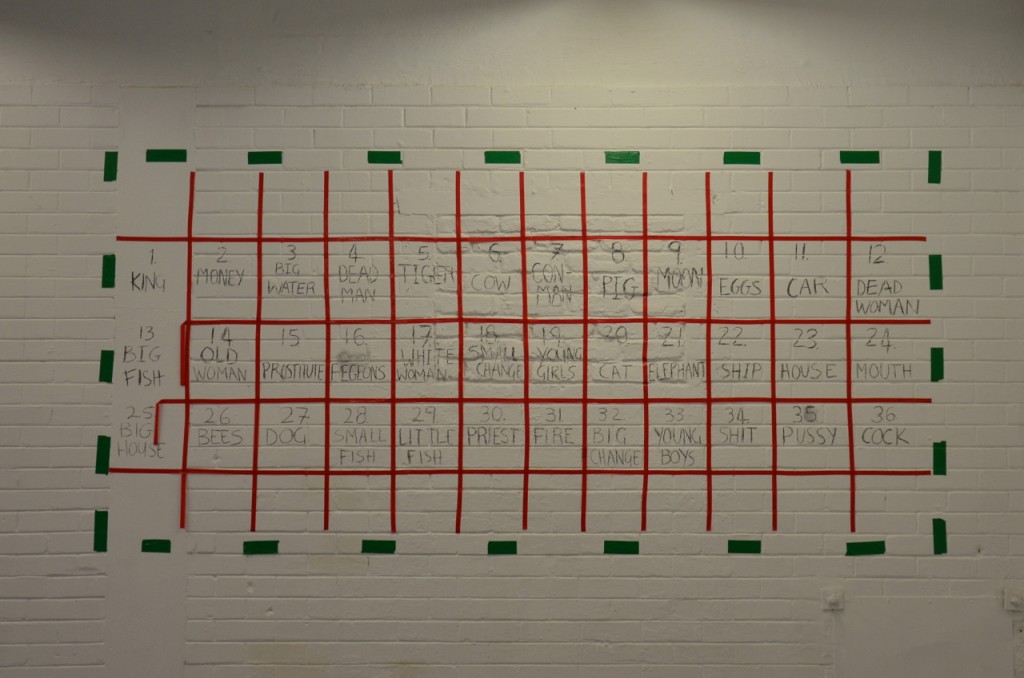 1. KING
2 MONEY
3 BIG WATER
4. DEAD MAN
5. TIGER
6. COW
7. CON-MAN
8. PIG
9. MOON
10. EGGS
11. CAR
12. DEAD WOMAN
13 BIG FISH
14 OLD WOMAN
15. PROSTITUTE
16. PEGEONS
17. WHITE WOMAN
18. SMALL CHANGE
19. YOUNG GIRLS
20. CAT
21. ELEPHANT
22. SHIP
23. HOUSE
24. MOUTH
25 BIG HOUSE
26 BEES
27 DOG
28 SMALL FISH
29. LITTLE FISH
30. PRIEST
31 FIRE
32 BIG CHANGE
33. YOUNG BOYS
34. SHIT
35 PUSSY
36 COCK